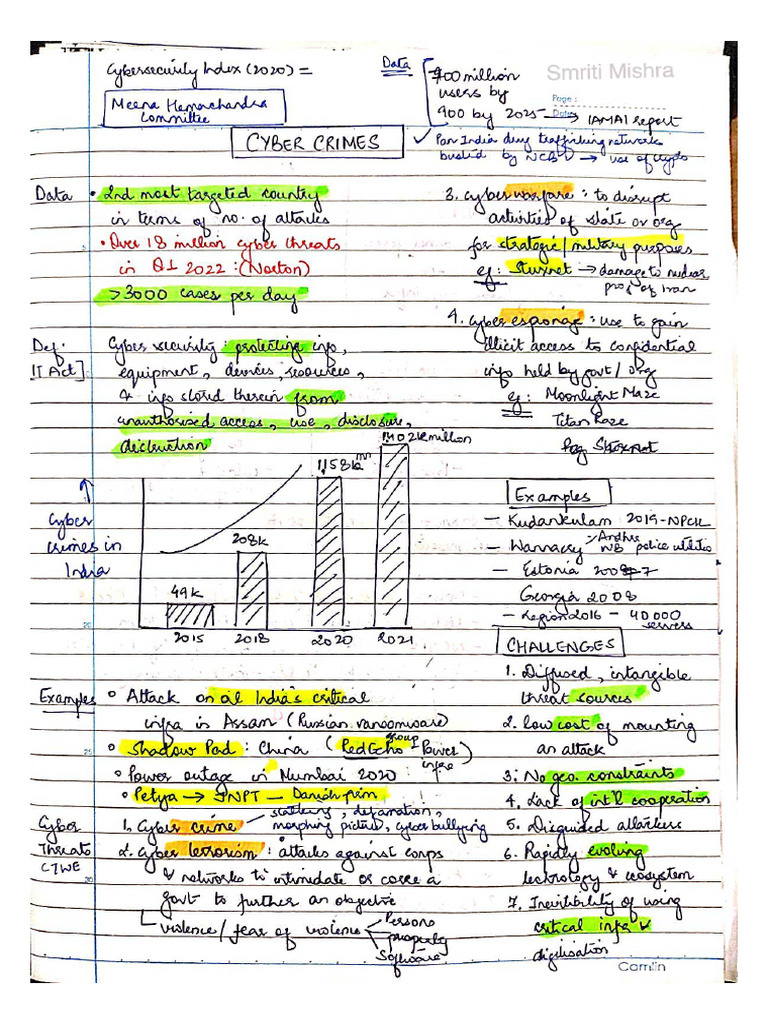 Cybersecurity Index (2020) =
Data
900 million
users by
900 by 2025 → IAMAI report
Smriti Mishra
Page :
Date :
Meena Hemachandra
Committee
CYBER CRIMES
✓ Pan India drug trafficking networks
busted by NCB → use of crypto
Data • 2nd most targeted country
in terms of no. of attacks
• Over 18 million cyber threats
in Q1 2022 : (Norton)
>3000 cases per day
Def.
IT Act]
Cyber security : protecting info,
equipment, devices, resources,
& info stored therein from
unauthorised access, use, disclosure,
destruction
↑
Cyber
crimes in
India
49k
208k
1,158k
1,402k million
2015 2018 2020 2021
Examples • Attack on oil India's critical
infra in Assam (Russian ransomware)
• Shadow Pad : China (RedEcho group - Power
infra
• Power outage in Mumbai 2020
• Petya → JNPT — Danish firm
Cyber
Threats
CTWE
1. Cyber crime - stalking, defamation,
morphing picture, cyber bullying
2. Cyber terrorism : attacks against comps
& networks to intimidate or coerce a
govt to further an objective
violence / fear of violence
Persons
property
Software
3. Cyber warfare : to disrupt
activities of state or org
for strategic / military purposes
eg : Stuxnet → damage to nuclear
prog of Iran
4. Cyber espionage : use to gain
illicit access to confidential
info held by govt / org
eg : Moonlight Maze
Titan Raze
Examples
- Kudankulam 2019 - NPCIL
- Wannacry - Andhra
WB police utilities
- Estonia 2007
Georgia 2008
- Legion 2016 - 40000
servers
CHALLENGES
1. Diffused, intangible
threat sources
2. low cost of mounting
an attack
3. No geo. constraints
4. Lack of int'l cooperation
5. Disguided attackers
6. Rapidly evolving
technology & ecosystem
7. Inevitibility of using
critical infra &
digitisation
Camlin